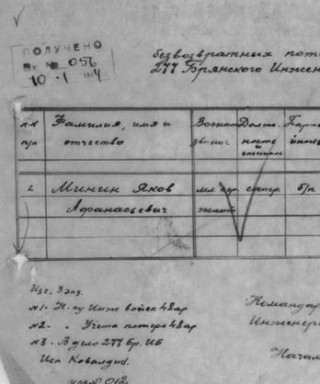 ПОЛУЧЕНО
Вх № 056
10 · 1 44
безвозвратных поте
277 Брянского Инжен
NN п/п
Фамилия, имя и отчество
Воен звание
Долж ность и специальн
Парт
1.
Минин Яков Афанасьевич
мл. сер жант
сапер
б/п
Изг. 3 экз.
N1- Н-ку Инж войск 48 ар
N2- " Учета потерь 48 ар
N3 - В дело 277 бр. ИБ
Исп Ковалдин.
Командир
Инженерн
Начал